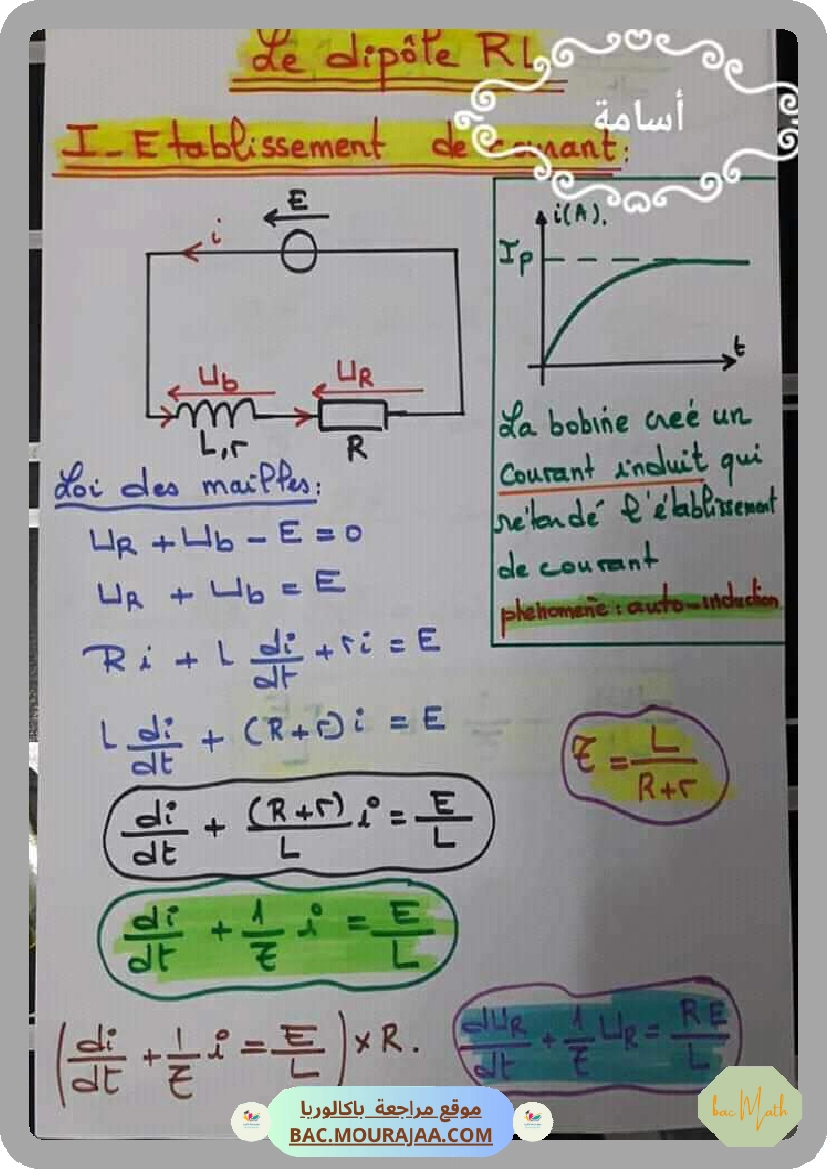 Le dipôle RL
أسامة
I - Etablissement de courant :
E
i
Ub
UR
L,r
R
i(A).
Ip
t
La bobine creé un
Courant induit qui
retardé l'établissement
de courant
phenomené : auto-induction
Loi des mailles :
UR + Ub - E = 0
UR + Ub = E
Ri + L di/dt + ri = E
L di/dt + (R+r) i = E
τ = L/(R+r)
di/dt + (R+r)/L i = E/L
di/dt + 1/τ i = E/L
(di/dt + 1/τ i = E/L) × R.
dUR/dt + 1/τ UR = RE/L
موقع مراجعة باكالوريا
BAC.MOURAJAA.COM
bac Math